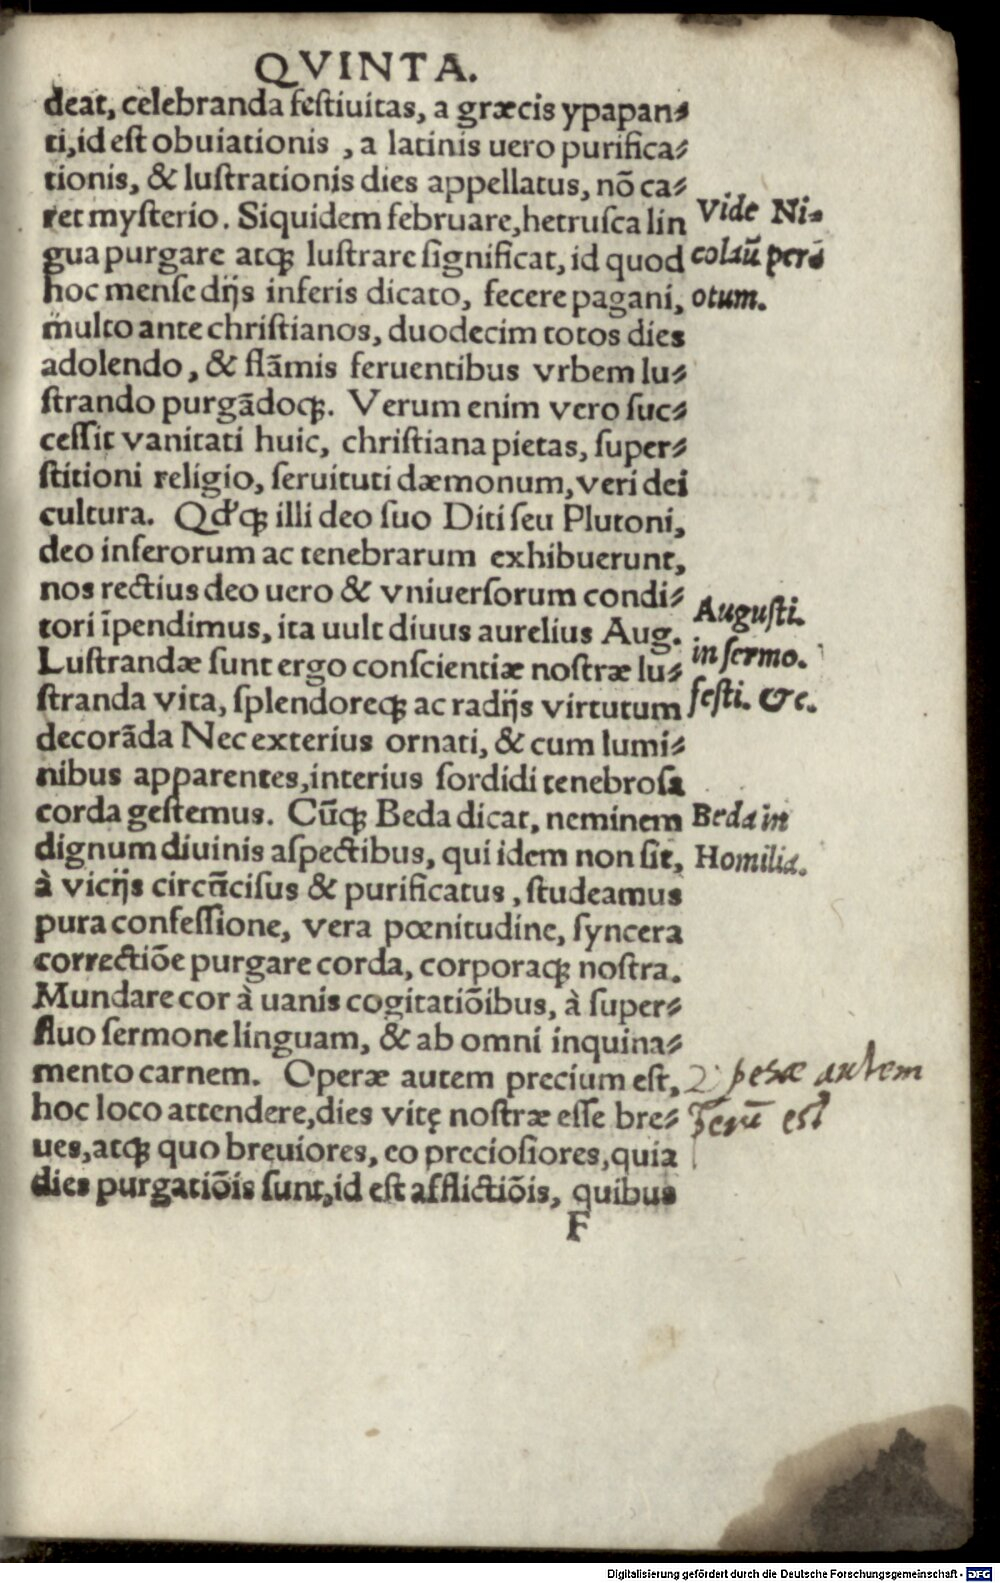 QVINTA.
deat, celebranda festiuitas, a græcis ypapan⸗
ti, id est obuiationis , a latinis uero purifica⸗
tionis, & lustrationis dies appellatus, nõ ca⸗
ret mysterio. Siquidem februare, hetrusca lin
gua purgare atqꝫ lustrare significat, id quod
hoc mense dijs inferis dicato, fecere pagani,
multo ante christianos, duodecim totos dies
adolendo, & flãmis feruentibus vrbem lu⸗
strando purgãdoqꝫ. Verum enim vero suc⸗
cessit vanitati huic, christiana pietas, super⸗
stitioni religio, seruituti dæmonum, veri dei
cultura. Qđqꝫ illi deo suo Diti seu Plutoni,
deo inferorum ac tenebrarum exhibuerunt,
nos rectius deo uero & vniuersorum condi⸗
tori ĩpendimus, ita uult diuus aurelius Aug.
Lustrandæ sunt ergo conscientiæ nostræ lu⸗
stranda vita, splendoreqꝫ ac radijs virtutum
decorãda Nec exterius ornati, & cum lumi⸗
nibus apparentes, interius sordidi tenebrosa
corda gestemus. Cũqꝫ Beda dicat, neminem
dignum diuinis aspectibus, qui idem non sit,
à vicijs circũcisus & purificatus , studeamus
pura confessione, vera pœnitudine, syncera
correctiõe purgare corda, corporaqꝫ nostra.
Mundare cor à uanis cogitatiõibus, à super⸗
fluo sermone linguam, & ab omni inquina⸗
mento carnem. Operæ autem precium est,
hoc loco attendere, dies vitę nostræ esse bre⸗
ues, atqꝫ quo breuiores, eo preciosiores, quia
dies purgatiõis sunt, id est afflictiõis, quibus
F
Vide Ni⸗
colaũ perõ
otum.
Augusti.
in sermo.
festi. &c.
Beda in
Homilia.
autem
est
Digitalisierung gefördert durch die Deutsche Forschungsgemeinschaft - DFG